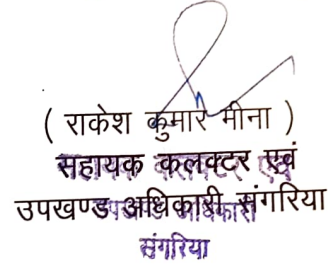 ( राकेश कुमार मीना )
सहायक कलक्टर एवं
उपखण्ड अधिकारी, संगरिया
संगरिया